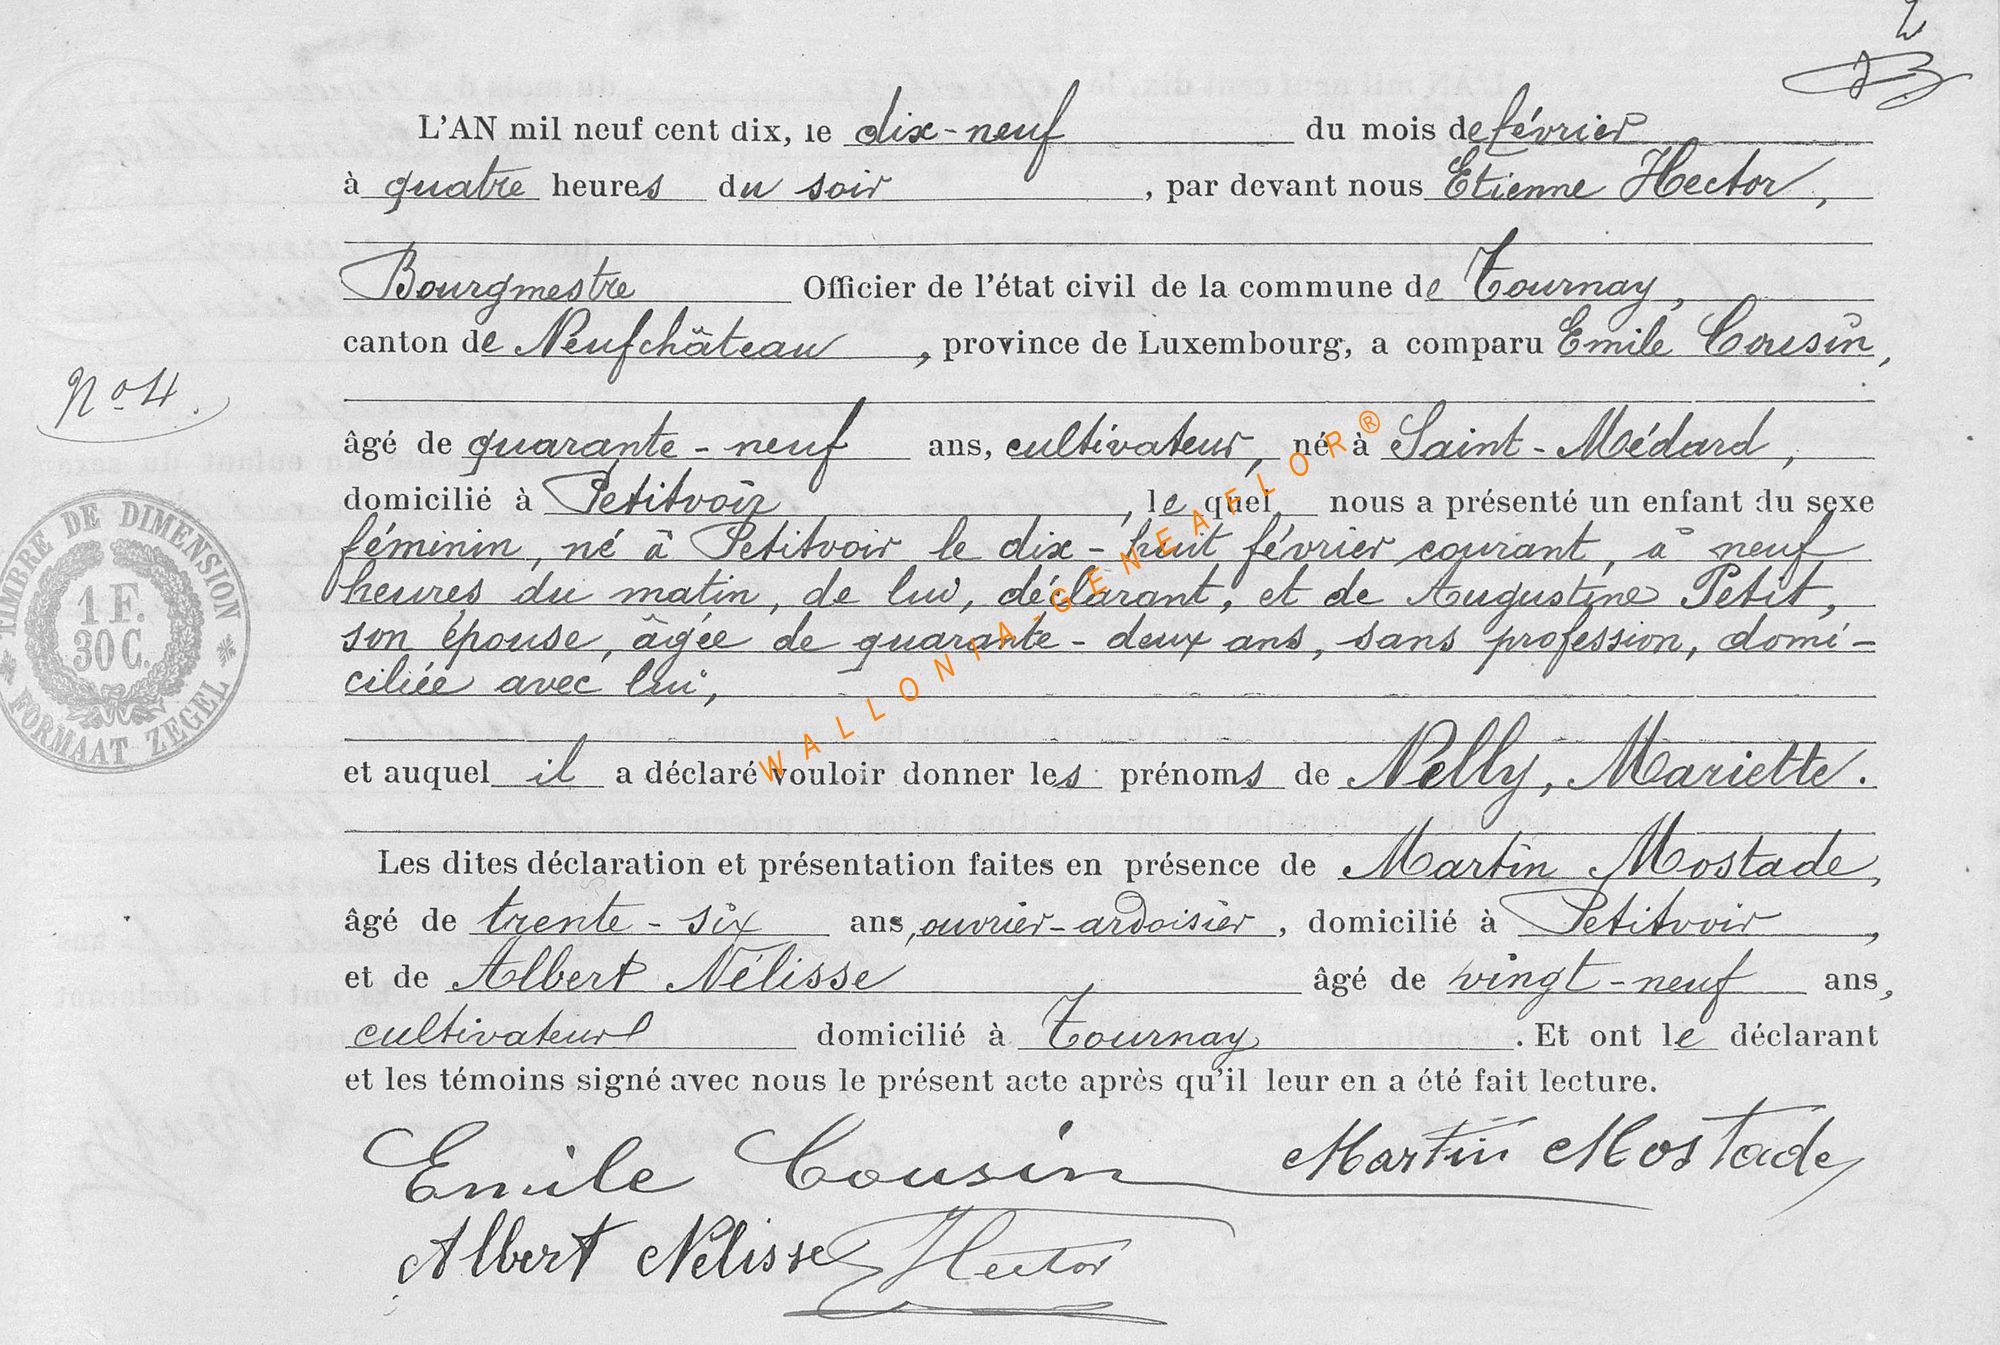 2
L'AN mil neuf cent dix, le dix-neuf du mois de février
à quatre heures du soir, par devant nous Etienne Hector,
Bourgmestre Officier de l'état civil de la commune de Tournay,
canton de Neufchâteau, province de Luxembourg, a comparu Emile Cousin,
No 4.
âgé de quarante-neuf ans, cultivateur, né à Saint-Médard,
domicilié à Petitvoir, le quel nous a présenté un enfant du sexe
féminin, né à Petitvoir le dix-huit février courant, à neuf
heures du matin, de lui, déclarant, et de Augustine Petit,
son épouse, âgée de quarante-deux ans, sans profession, domi-
ciliée avec lui,
TIMBRE DE DIMENSION
1 F.
30 C.
FORMAAT ZEGEL
WALLONIA-GENEAFLOR®
et auquel il a déclaré vouloir donner les prénoms de Nelly, Mariette.
Les dites déclaration et présentation faites en présence de Martin Mostade,
âgé de trente-six ans, ouvrier-ardoisier, domicilié à Petitvoir,
et de Albert Nélisse âgé de vingt-neuf ans,
cultivateur domicilié à Tournay. Et ont le déclarant
et les témoins signé avec nous le présent acte après qu'il leur en a été fait lecture.
Emile Cousin Martin Mostade
Albert Nélisse Hector